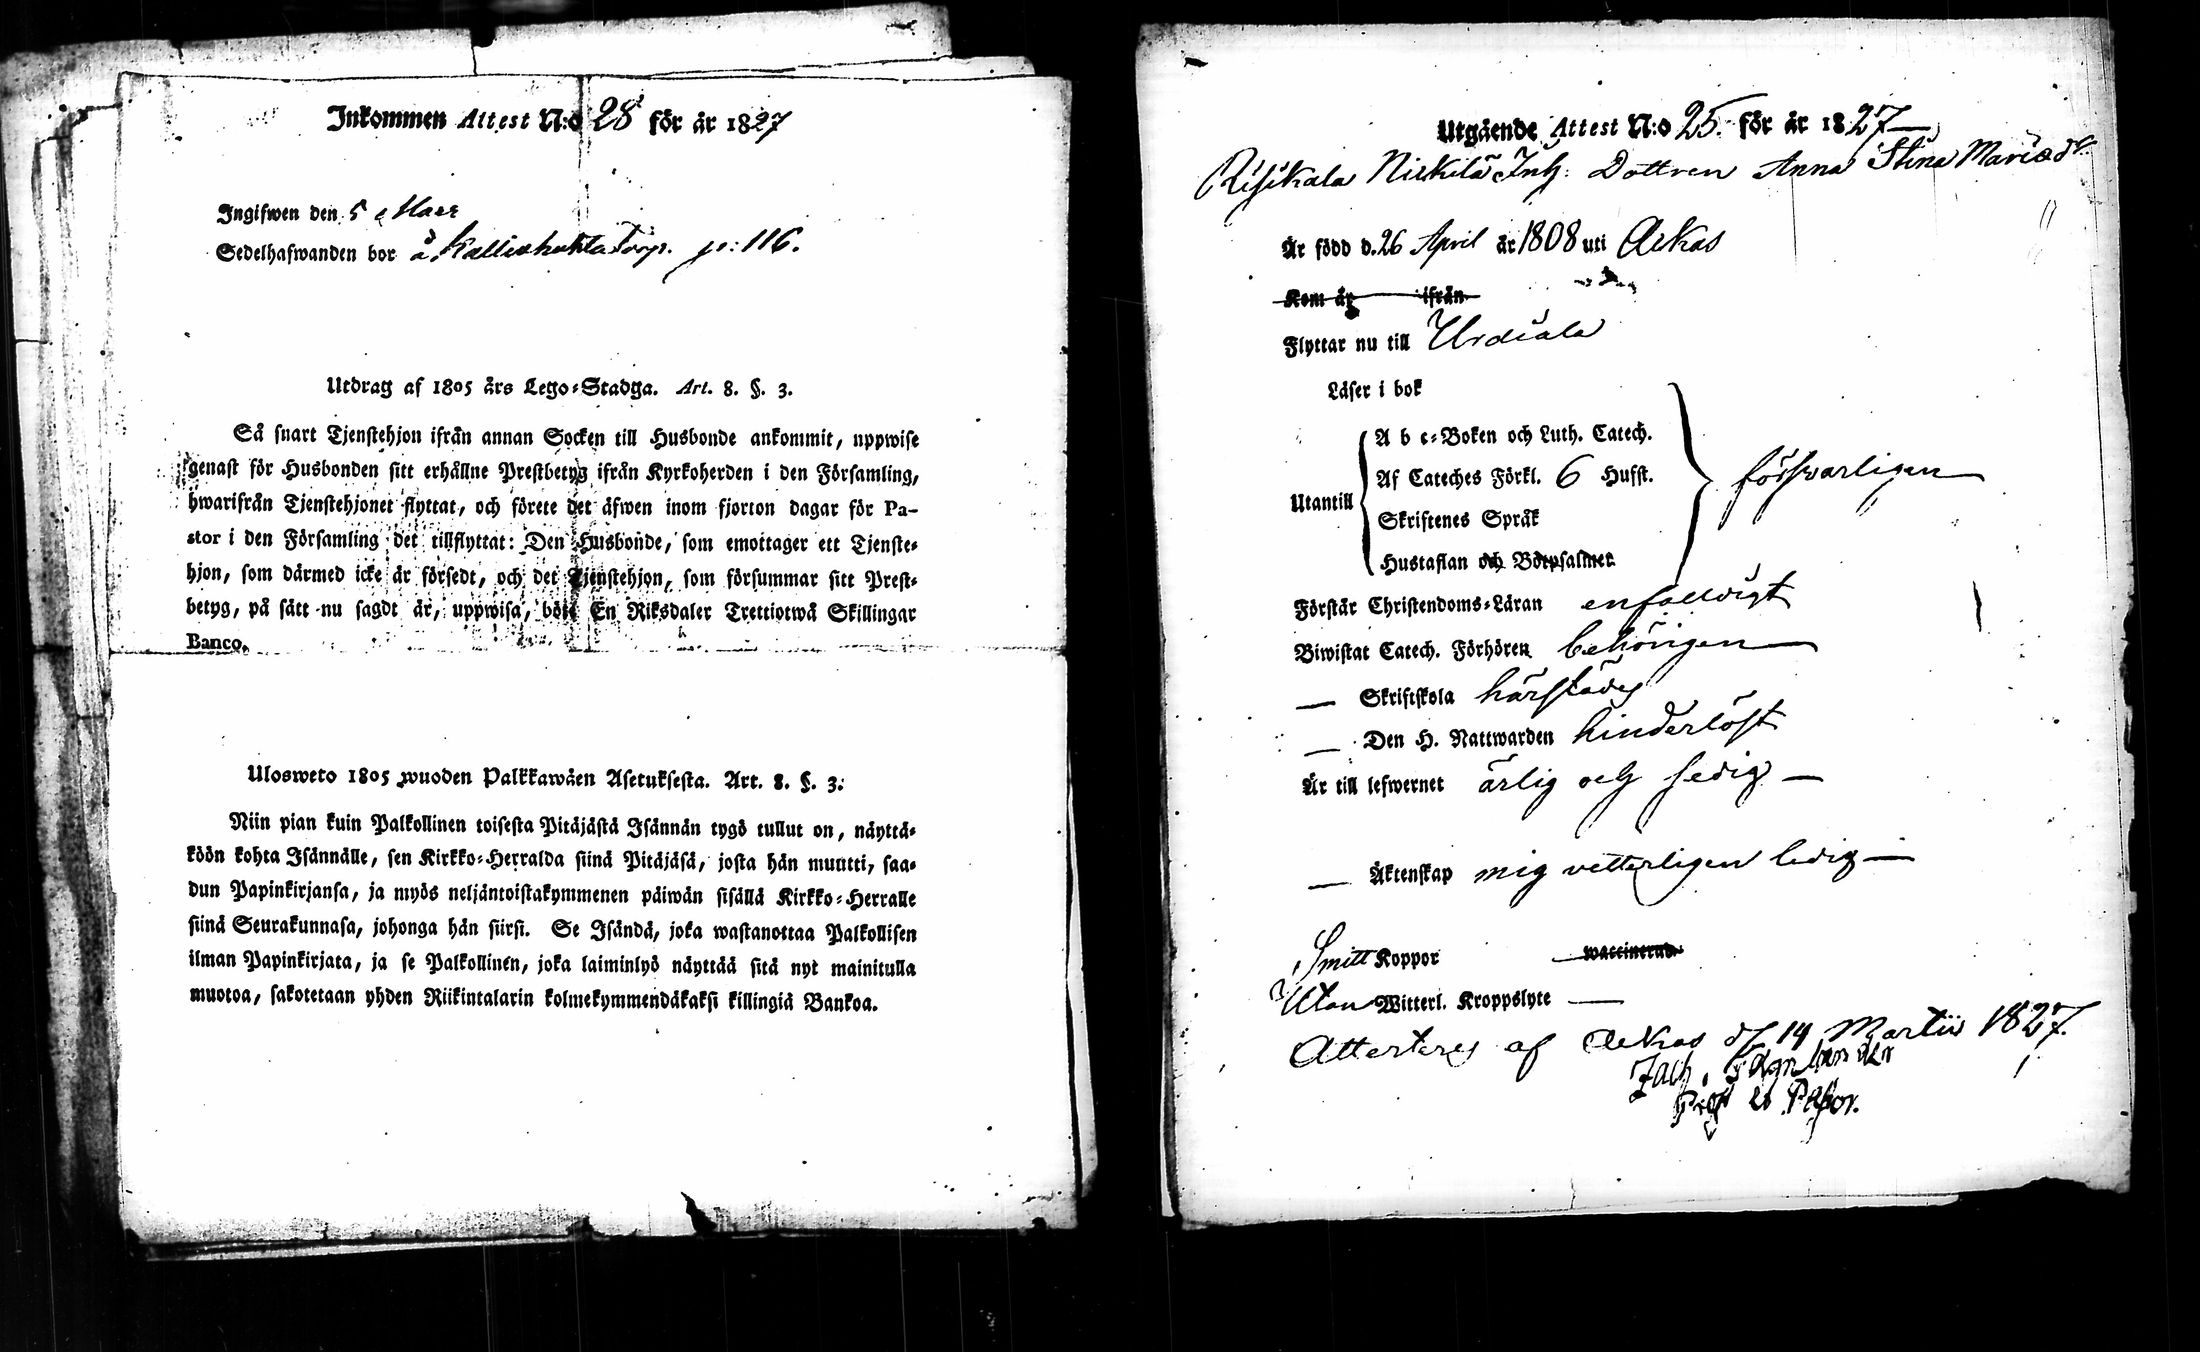 Inkommen Attest N:o 28 för år 1827
Ingifwen den 5
Sedelhafwanden bor å Torp. p: 116.
Utdrag af 1805 års Lego-Stadga. Art. 8. §. 3.
Så snart Tjenstehjon ifrån annan Socken till Husbonde ankommit, uppwise
genast för Husbonden sitt erhållne Prestbetyg ifrån Kyrkoherden i den Församling,
hwarifrån Tjenstehjonet flyttat, och förete det äfwen inom fjorton dagar för Pa-
stor i den Församling det tillflyttat: Den Husbonde, som emottager ett Tjenste-
hjon, som därmed icke är försedt, och det Tjenstehjon, som försummar sitt Prest-
betyg, på sätt nu sagdt är, uppwisa, böte En Riksdaler Trettiotwå Skillingar
Banco.
Ulosweto 1805 wuoden Palkkawäen Asetuksesta. Art. 8. §. 3.
Niin pian kuin Palkollinen toisesta Pitäjästä Isännän tygö tullut on, näyttä-
köön kohta Isännälle, sen Kirkko-Herralda siinä Pitäjäsä, josta hän muutti, saa-
dun Papinkirjansa, ja myös neljäntoistakymmenen päiwän sisällä Kirkko-Herralle
siinä Seurakunnasa, johonga hän siirsi. Se Isändä, joka wastanottaa Palkollisen
ilman Papinkirjata, ja se Palkollinen, joka laiminlyö näyttää sitä nyt mainitulla
muotoa, sakotetaan yhden Riikintalarin kolmekymmendäkaksi killingiä Bankoa.
Utgående Attest N:o 25. för år 1827
Risikala Nickilä Inh: Dottren Anna Stina Mariædr.
Är född d. 26 April år 1808 uti Ackas
Kom år ifrån
Flyttar nu till Urdiala
Läser i bok
A b c-Boken och Luth. Catech.
Af Cateches Förkl. 6 Hufst.
Utantill
Skriftenes Språk
försvarligen
Hustaflan och Botpsalmer
Förstår Christendoms-Läran enfalldigt
Biwistat Catech. Förhören behörigen
— Skriftskola härstädes
— Den H. Nattwarden hinderlöst
Är till lefwernet ärlig och sedig —
— Äktenskap mig vetterligen ledig —
Smitt Koppor waccinerad
Utan Witterl. Kroppslyte —
Attesteras af Ackas d 14 Martii 1827.
Zach.
Prost o Pastor.